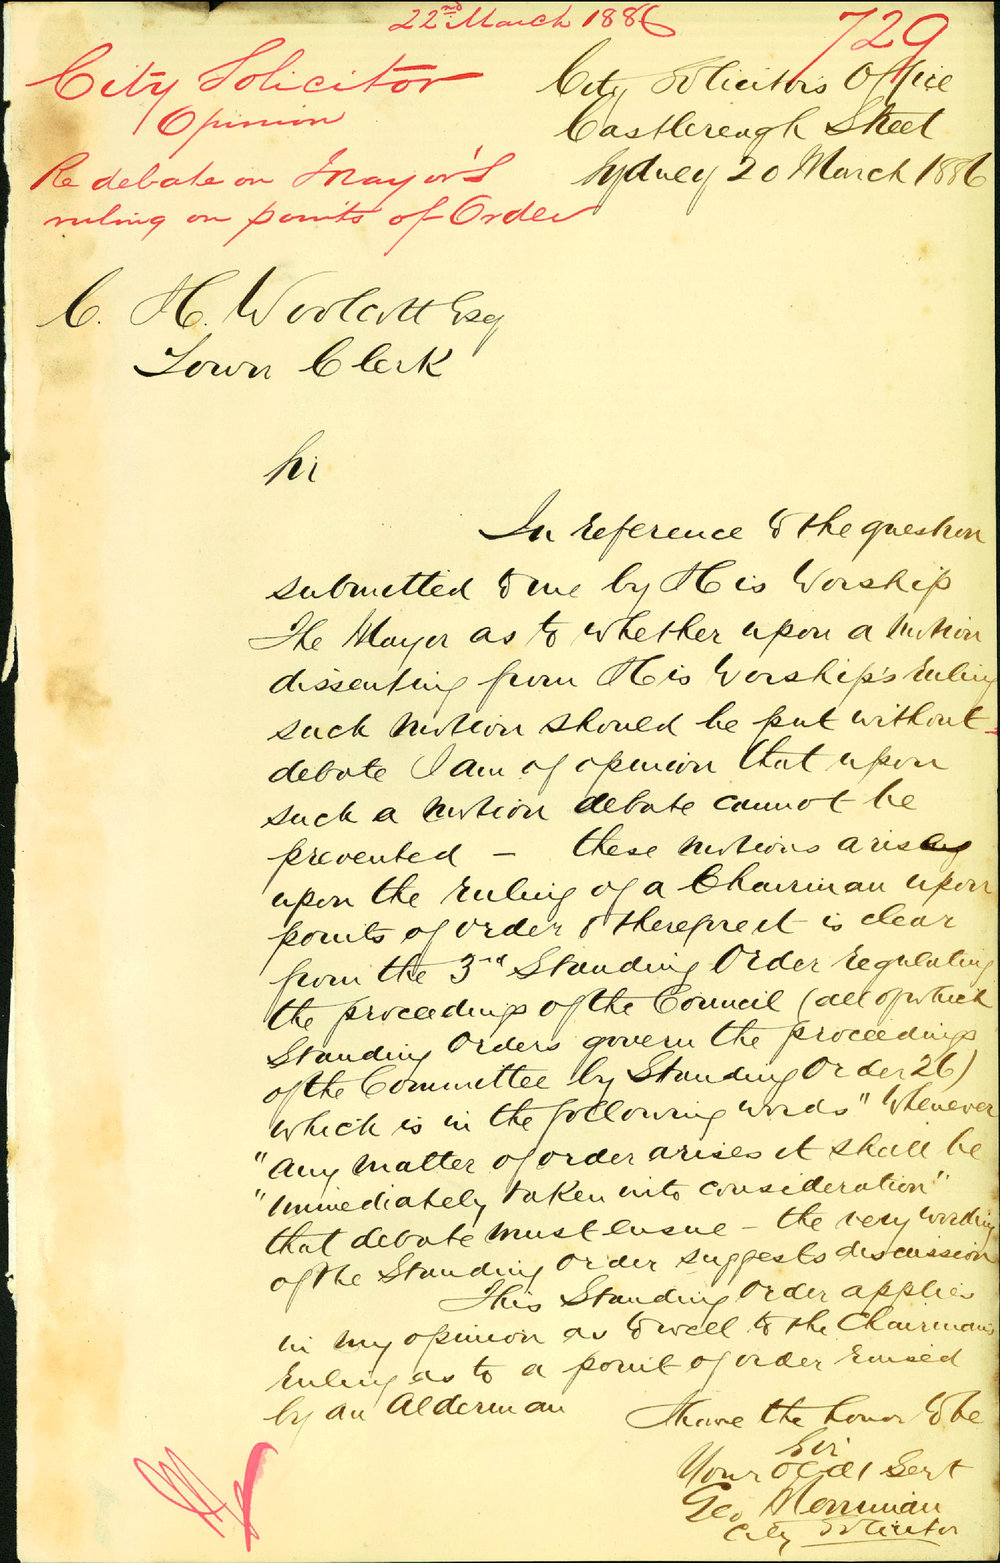 22nd March 1886
729
City Solicitor
Opinion
Re debate on Mayor's
ruling on points of Order
City Solicitor's Office
Castlereagh Street
Sydney 20 March 1886
C. H. Woolcott Esq
Town Clerk
Sir
In reference to the question
submitted to me by His Worship
The Mayor as to whether upon a motion
dissenting from His Worship's ruling
such motion should be put without
debate I am of opinion that upon
such a motion debate cannot be
prevented – these motions arise
upon the ruling of a Chairman upon
points of order & therefore it is clear
from the 3rd Standing Order regulating
the proceedings of the Council (all of which
Standing Orders govern the proceedings
of the Committee by Standing Order 26)
which is in the following words "Whenever
"any matter of order arises it shall be
"immediately taken into consideration"
that debate must ensue – the very wording
of the Standing Order suggests discussion
This Standing Order applies
in my opinion as well to the Chairman's
ruling as to a point of order raised
by an Alderman
I have the honor to be
Sir
Your Obdt Servt
Geo Merriman
City Solicitor